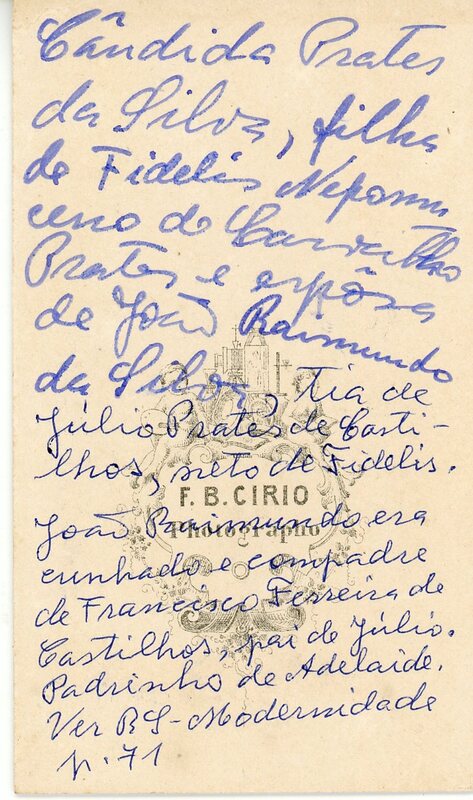 Cândida Prates
da Silva, filha
de Fidelis Nepomu
ceno de Carvalho
Prates e espôsa
de João Raimundo
da Silva, tia de
Júlio Prates de Casti-
lhos, neto de Fidelis.
F. B. CIRIO
Photographo
João Raimundo era
cunhado e compadre
de Francisco Ferreira de
Castilhos, pai de Júlio.
Padrinho de Adelaide.
Ver RS-Modernidade
p. 71